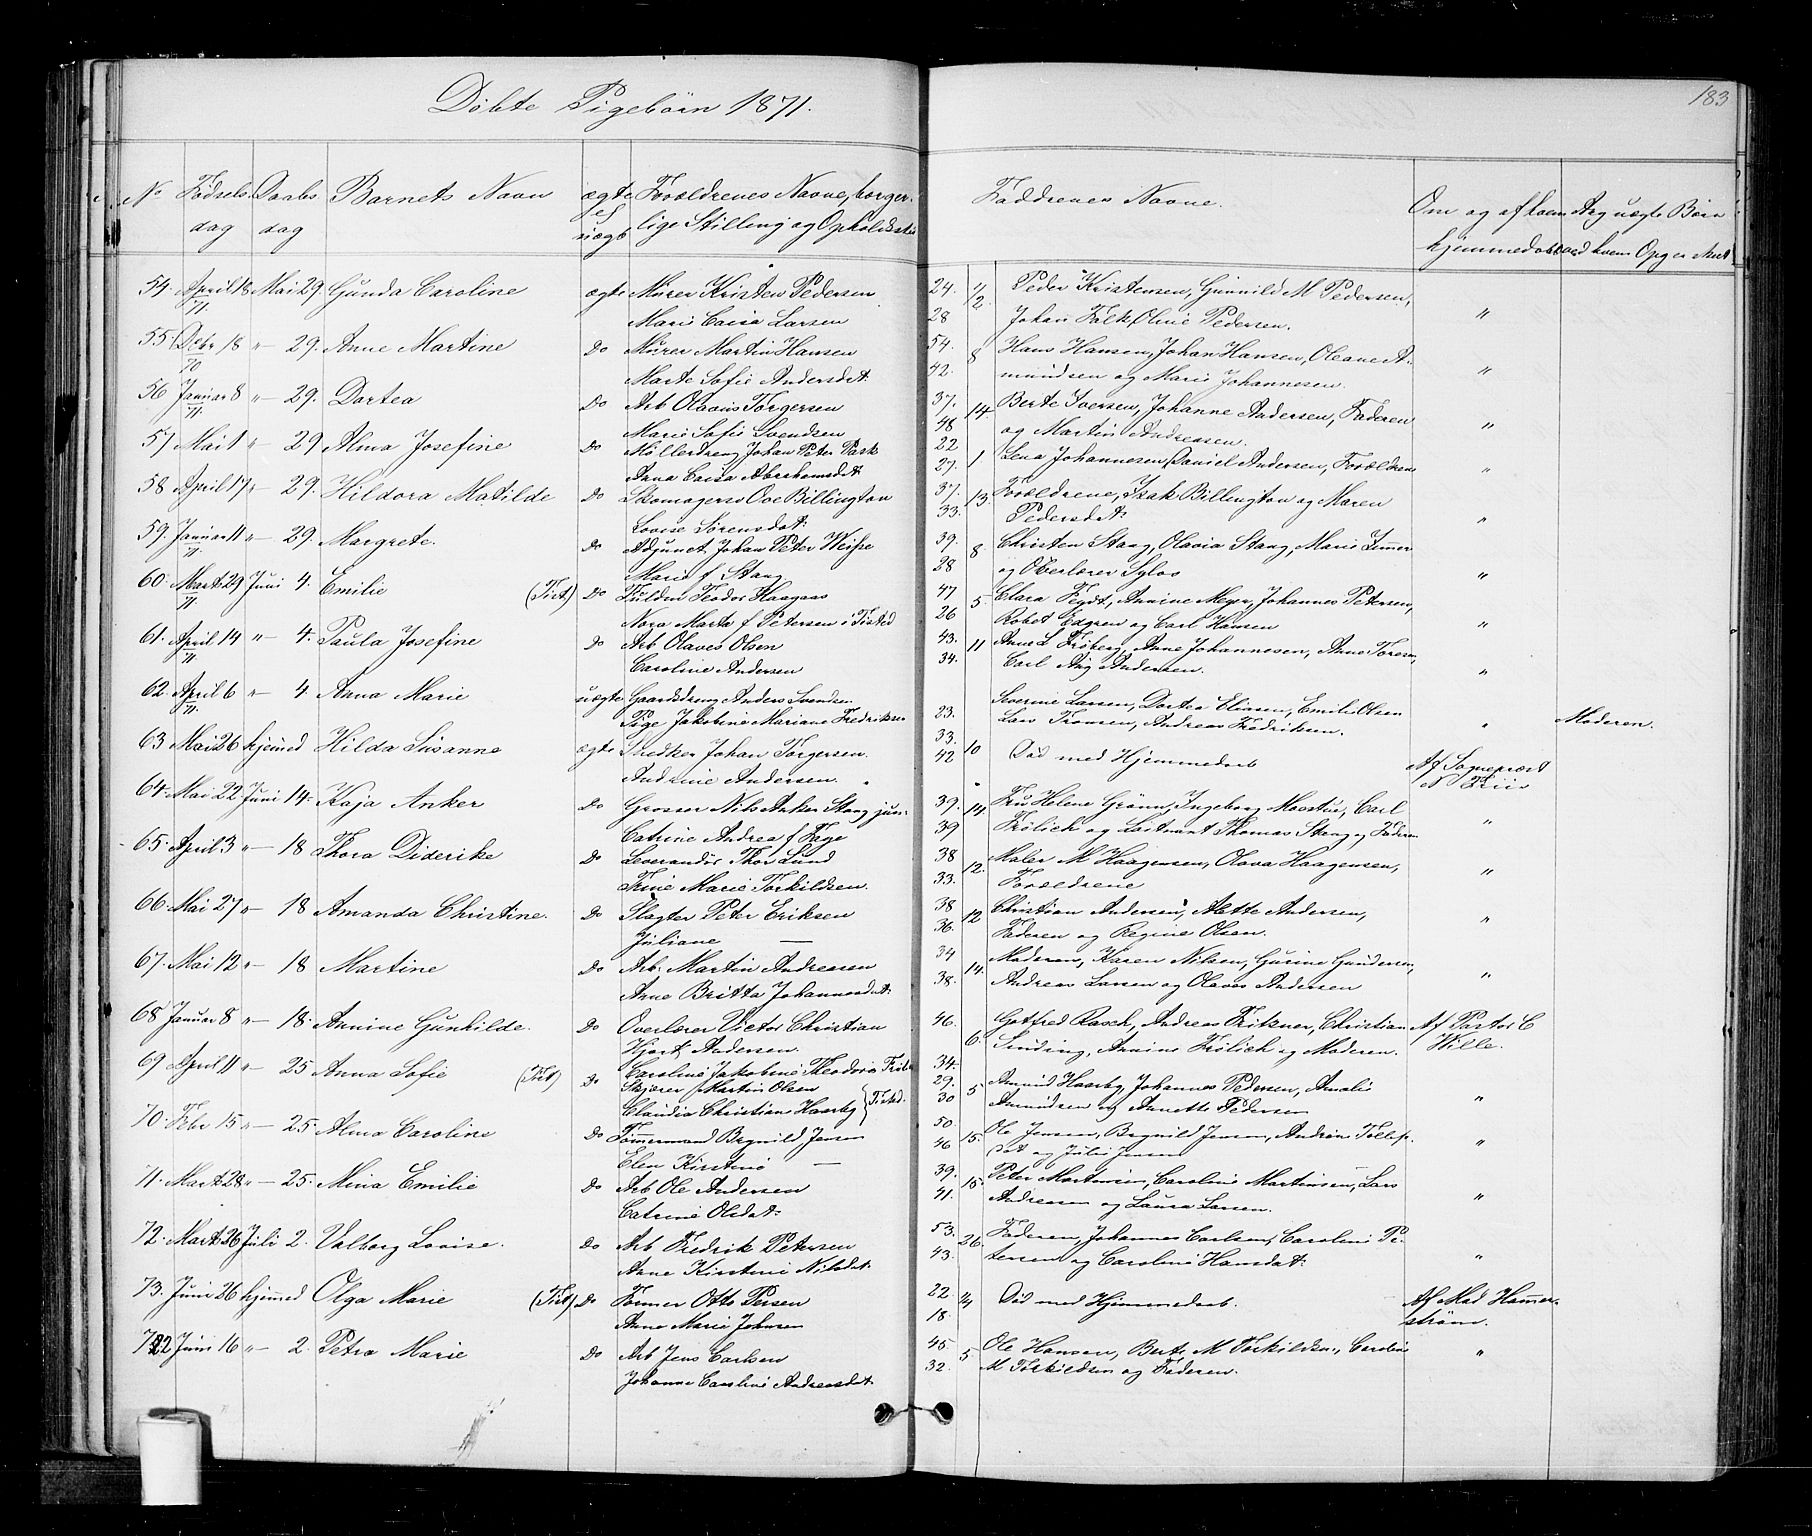 Døbte Pigebörn 1871.
183
No Fødsels dag Daabs dag Barnets Navn ægte el uægt Forældrenes Navne, borgerlige Stilling og Opholdssted Faddrenes Navne. Om og af hvem hjemmedøbt Ang uægte Børn ved hvem Opg er
54. April 18 Mai 29. Gunda Caroline ægte Murer Kristen Pedersen 24. 1/2 Peder Kristensen, Gunnild M Pedersen, "
71. Marie Caisa Larsen 28 Johan Falk, Oline Pedersen.
55. Debr 18 " 29. Anne Martine Do Murer Martin Hansen 54. 8 Hans Hansen, Johan Hansen, Oleane A-
70 Marte Sofie Andersdat: 42. mundsen og Marie Johannesen. "
56 Januar 8 " 29. Dortea Do Arb Olavus Torgersen 37. 14. Berte Iversen, Johanne Andersen, Faderen
71. Marie Sofie Svendsen 48 og Martin Andreasen. "
57 Mai 1 " 29 Alma Josefine Do Møllerdreng Johan Peter Park 22 1. Lena Johannesen, Daniel Andersen, Forældrene
Anna Caisa Abrahamsdat: 27. "
58 April 17 " 29. Hildora Matilde Do Skomagersv Ove Billington 37. 13. Forældrene, Isak Billington og Maren
Lovise Sørensdat: 33. Pedersdat: "
59. Januar 11 " 29. Margrete. Do Adjunct Johan Peter Weisse 39. 8. Christen Stang, Olavia Stang, Marie
71. Marie f. Stang 28 og Overlærer Sylov "
60. Marts 29 Juni 4. Emilie (Tist) Do Fuldm Teodor Haagaas 47 5. Clara Feydt, Annine Meyer, Johannes Petersen,
71. Nora Marte f Petersen i Tisted 26 Robet Edgren og Carl Hansen "
61. April 14 " 4. Paula Josefine Do Arb Olaves Olsen 43. 11 Anne L Frøberg, Anne Johannesen, Anne Toresen,
71. Caroline Andersen 34. Carl Aug Andersen. "
62. April 6 " 4 Anna Marie uægte Gaardsdreng Anders Svendsen 23. Severine Larsen, Dortea Eliesen, Emilie Olsen
71. Pige Jakobine Mariane Fredriksen 33. Lars Transen, Andreas Fredriksen. " Moderen.
63 Mai 26 hjemmed Hilda Susanne ægte Snedker Johan Torgersen. 42 10 Død med Hjemmedaab Af Sogneprest
Andrine Andersen. N
64. Mai 22 Juni 14. Kaja Anker Do Grosser Nils Anker Stang jun: 39. 14. Fru Helene Grønn, Ingeborg Mostue, Carl
Catrine Andrea f Fage 39 Frølich og Loitnant Thomas Stang og Faderen "
65. April 3 " 18 Thora Diderike Do Leverandør Thor Lund 38 12. Maler M Haagensen, Olava Haagensen,
Trine Marie Torkildsen. 33. Forældrene "
66. Mai 27 " 18 Amanda Christine. Do Slagter Peter Eriksen 38 12 Christian Andersen, Alette Andersen,
Juliane — 36. Faderen og Regine Olsen. "
67. Mai 12 " 18 Martine Do Arb. Martin Andreasen 34 14. Moderen, Karen Nilsen, Gurine Gundersen,
Anne Britta Johannesdat: 38. Andreas Larsen og Olaves Andersen "
68 Januar 8 " 18. Annine Gunhilde. Do Overlærer Victor Christian 46. 6. Gotfred Rasch, Andreas Fritzner, Christian Af Pastor C
Hjort Andersen. Sinding, Annine Frølich og Moderen. Wille.
Caroline Jakobine Theodora 34.
69 April 11 " 25 Anna Sofie (Tist) Do Skjærer Martin Olsen 29. 5 Amund Haarby, Johannes Pedersen, Amalie
Claudia Christian Haarby } Tisted. 30 Amundsen og Annette Pedersen "
70. Febr 15 " 25. Alma Caroline Do Tømmermand Brynild Jensen 50. 15. Ole Jensen, Brynild Jensen, Andrine Tollefs
Elen Kirstine — 46 dat og Julie Jensen "
71. Marts 28 " 25. Mina Emilie Do Arb Ole Andersen 39. 15. Peter Martinsen, Caroline Martinsen, Lars
Catrine Olsdat: 41. Andreasen og Laura Larsen. "
72. Marts 26 Juli 2. Valborg Lovise. Do Arb Fredrik Petersen 53. 26. Faderen, Johannes Carlsen, Caroline Pe-
Anne Kirstine Nilsdat: 43. tersen og Caroline Hansdat: "
73. Juni 26 hjemmed Olga Marie (Tist) Do Former Otto Persen 22. 1/4 Død med Hjemmedaab. Af Mad Hammer-
Anne Marie Johnsen 18. strøm.
Juni 16 " 2. Petra Marie Do Arb Jens Carlsen 45. 5 Ole Hansen, Berte M Torkildsen, Caroline
Johanne Caroline Andreasdat: 32. M Torkildsen og Faderen. "